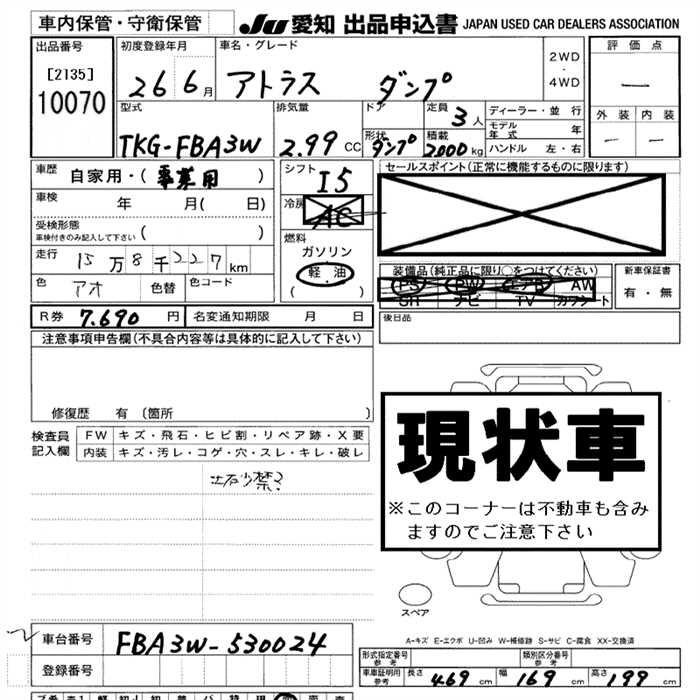 車内保管・守衛保管 JU 愛知 出品申込書 JAPAN USED CAR DEALERS ASSOCIATION
出品番号 初度登録年月 車名・グレード 2WD・4WD 評価点
[2135]
10070 26 6月 アトラス ダンプ —
型式 排気量 ドア 定員 3人 ディーラー・並行 外装 内装
モデル年式 年
TKG-FBA3W 2.99CC 形状 ダンプ 積載 2000kg ハンドル 左・右 — —
車歴 自家用・(事業用) シフト I5 セールスポイント(正常に機能するものに限ります)
車検 年 月(日) 冷房 AC
受検形態 ( )
車検付きのみ記入して下さい
燃料 ガソリン
軽・油
( )
走行 15万8千227km
装備品(純正品に限り○をつけてください) 新車保証書
PS PW エアB AW 有・無
SR ナビ TV カワシート
色 アオ 色替 色コード
R券 7.690円 名変通知期限 月 日 後日品
注意事項申告欄(不具合内容等は具体的に記入して下さい)
現状車
※このコーナーは不動車も含み
ますのでご注意下さい
修復歴 有 〔箇所 〕
検査員 FW キズ・飛石・ヒビ割・リペア跡・X要
記入欄 内装 キズ・汚レ・コゲ・穴・スレ・キレ・破レ
土石少禁
スペア
A-キズ E-エクボ U-凹み W-補修跡 S-サビ C-腐食 XX-交換済
車台番号 FBA3W-530024
登録番号
形式指定番号 参考 類別区分番号 参考
車庫証明用 参考 長さ 469cm 幅 169cm 高さ 199cm